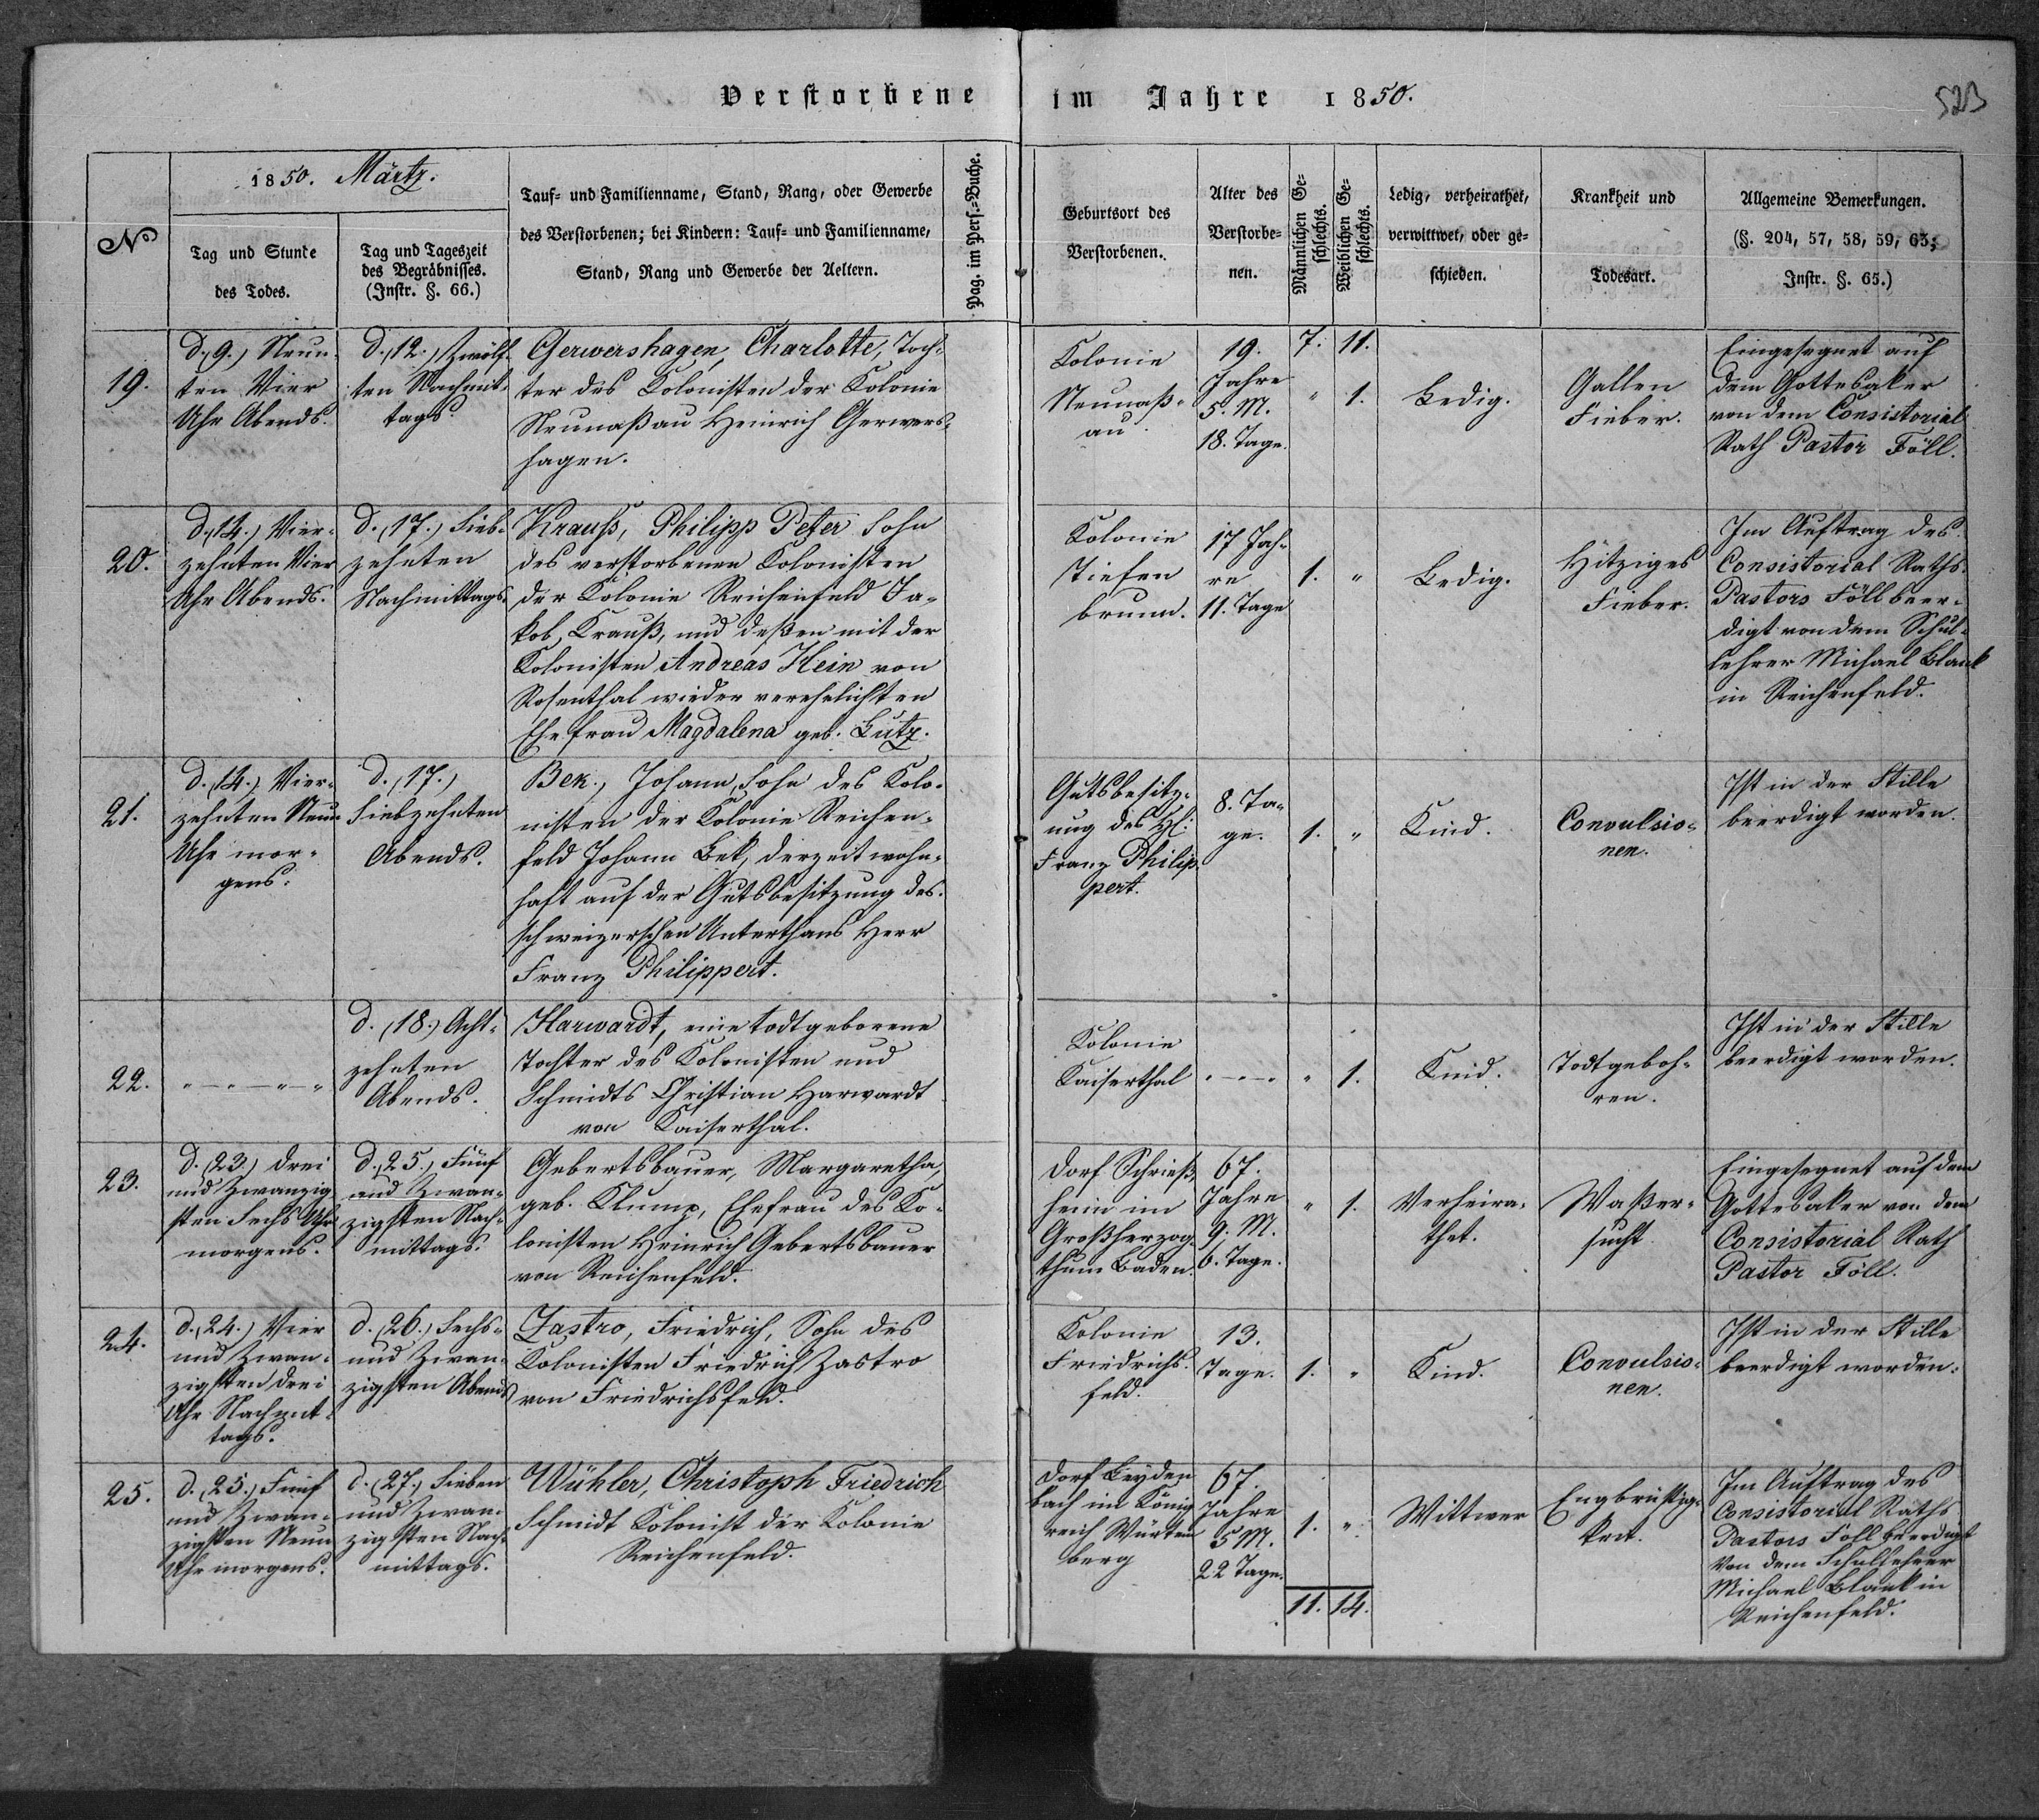 Verstorbene im Jahre 1850.
523
№
1850. Märtz.
Tag und Stunde
des Todes.
Tag und Tageszeit
des Begräbnisses.
(Instr. §. 66.)
Tauf- und Familienname, Stand, Rang, oder Gewerbe
des Verstorbenen; bei Kindern: Tauf- und Familienname,
Stand, Rang und Gewerbe der Aeltern.
Pag. im Pers.-Buche.
Geburtsort des
Verstorbenen.
Alter des
Verstorbe-
nen.
Männlichen Ge-
schlechts.
Weiblichen Ge-
schlechts.
Ledig, verheirathet,
verwittwet, oder ge-
schieden.
Krankheit und
Todesart.
Allgemeine Bemerkungen.
(§. 204, 57, 58, 59, 63;
Instr. §. 65.)
19.
d. (9.) Neun-
ten Vier
Uhr Abends.
d. (12.) Zwölf-
ten Nachmit-
tags.
Gerwershagen, Charlotte, Toch-
ter des Kolonisten der Kolonie
Neunaßau Heinrich Gerwers-
hagen.
Kolonie
Neunaß-
au.
19.
Jahre
5. M.
18. Tage.
7. 11.
" 1.
Ledig.
Gallen
Fieber.
Eingesegnet auf
dem Gottesaker
von dem Consistorial
Rath Pastor Föll.
20.
d. (14.) Vier-
zehnten Vier
Uhr Abends.
d. (17.) Sieb-
zehnten
Nachmittags.
Krauß, Philipp Peter Sohn
des verstorbenen Kolonisten
der Kolonie Reichenfeld Ja-
kob Krauß, und deßen mit der
Kolonisten Andreas Hein von
Rosenthal wieder verehelichten
Ehefrau Magdalena geb. Lutz.
Kolonie
Tiefen
brunn.
17 Jah-
re
11. Tage
1. "
Ledig.
Hitziges
Fieber.
Im Auftrag des
Consistorial Raths
Pastors Föll beer-
digt von dem Schul-
lehrer Michael Blank
in Reichenfeld.
21.
d. (14.) Vier-
zehnten Neun
Uhr mor-
gens.
d. (17.)
Siebzehnten
Abends.
Bek, Johann, Sohn des Kolo-
nisten der Kolonie Reichen-
feld Johann Bek, derzeit wohn-
haft auf der Gutsbesitzung des
schweizerschen Unterthans Herr
Franz Philippert.
Gutsbesitz-
ung des H:
Franz Philip-
pert.
8. Ta-
ge.
1. "
Kind.
Convulsio-
nen.
Ist in der Stille
beerdigt worden.
22.
" — " — " — "
d. (18.) Acht-
zehnten
Abends.
Harwardt, eine todtgeborene
Tochter des Kolonisten und
Schmidts Christian Harwardt
von Kaiserthal.
Kolonie
Kaiserthal
" — " — "
" 1.
Kind.
Todtgeboh-
ren.
Ist in der Stille
beerdigt worden.
23.
d. (23.) Drei
und Zwanzig
sten Sechs Uhr
morgens.
d. (25.) Fünf
und Zwan-
zigsten Nach-
mittags.
Gebertsbauer, Margaretha,
geb. Klump, Ehefrau des Ko-
lonisten Heinrich Gebertsbauer
von Reichenfeld.
Dorf Schrieß-
heim im
Großherzog-
thum Baden.
67.
Jahre
9. M.
6. Tage.
" 1.
Verheira-
thet.
Waßer-
sucht.
Eingesegnet auf dem
Gottesaker von dem
Consistorial Rath
Pastor Föll.
24.
d. (24.) Vier
und Zwan-
zigsten Drei
Uhr Nachmit-
tags.
d. (26.) Sechs-
und Zwan-
zigsten Abends
Zastro, Friedrich, Sohn des
Kolonisten Friedrich Zastro
von Friedrichsfeld.
Kolonie
Friedrichs-
feld.
13.
Tage.
1. "
Kind.
Convulsio-
nen.
Ist in der Stille
beerdigt worden.
25.
d. (25.) Fünf
und Zwan-
zigsten Neun
Uhr morgens.
d. (27.) Sieben
und Zwan-
zigsten Nach-
mittags.
Wühler, Christoph Friedrich
Schmidt Kolonist der Kolonie
Reichenfeld.
Dorf Leyden
bach im König
reich Würtem
berg
67.
Jahre
5 M.
22 Tage.
1. "
Wittwer
Engbrüstig-
keit.
Im Auftrag des
Consistorial Raths
Pastors Föll beerdigt
von dem Schullehrer
Michael Blank in
Reichenfeld.
11. 14.